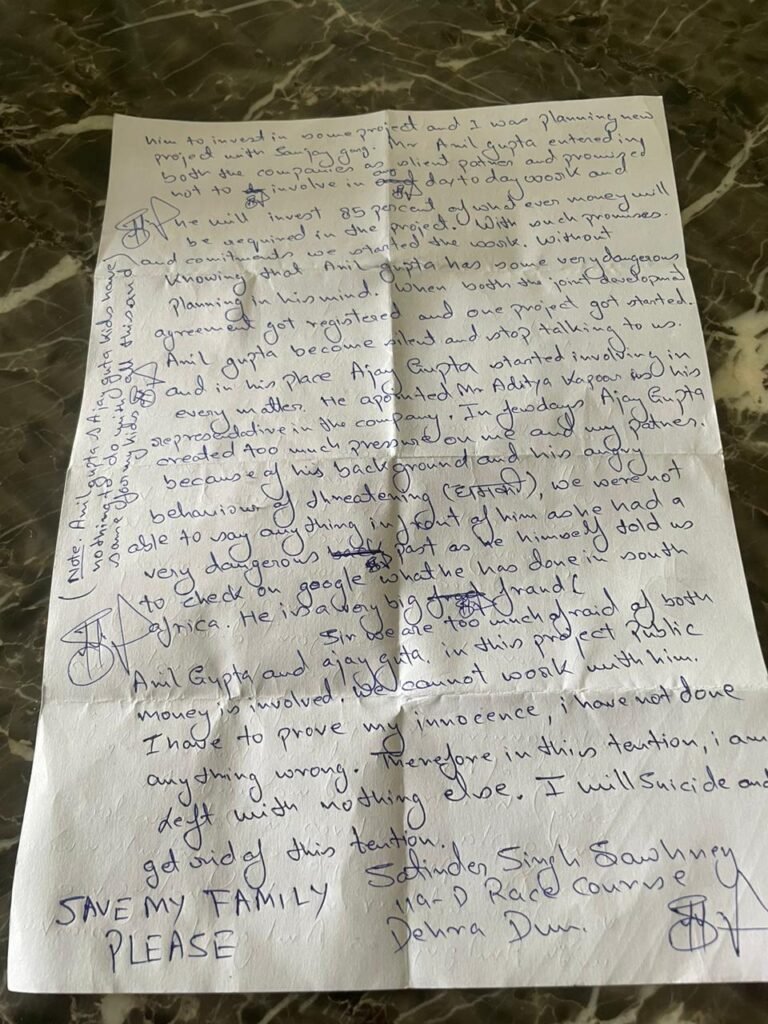 him to invest in some project and I was planning new
project with Sanjay garg. Mr Anil Gupta entered in
both the companies as silent patner and promized
not to involve in day to day work and
he will invest 85 percent of what ever money will
be required in the project. With such promises
and comitments we started the work. Without
Knowing that Anil gupta has some very dangerous
planning in his mind. When both the joint development
agreement got registered and one project got started.
Anil gupta become silent and stop talking to us.
and in his place Ajay Gupta started involving in
every matter. He apointed Mr Aditya Kapoor as his
representative in the company. In few days Ajay Gupta
created too much pressure on me and my patner.
because of his background and his angry
behaviour of threatening (धमकी), we were not
able to say anything in front of him as he had a
very dangerous past as he himself told us
to check on google what he has done in south
africa. He is a very big fraud (
Sir we are too much afraid of both
Anil Gupta and ajay guta. in this project Public
money is involved. we cannot work with him.
I have to prove my innocence, i have not done
anything wrong. Therefore in this tention, i am
left with nothing else. I will Suicide and
get rid of this tention.
Satinder Singh Sawhney
119-D Race Course
Dehra Dun.
SAVE MY FAMILY
PLEASE
(Note. Anil gupta & Ajay guta kids have
nothing to do with all this and
same for my kids